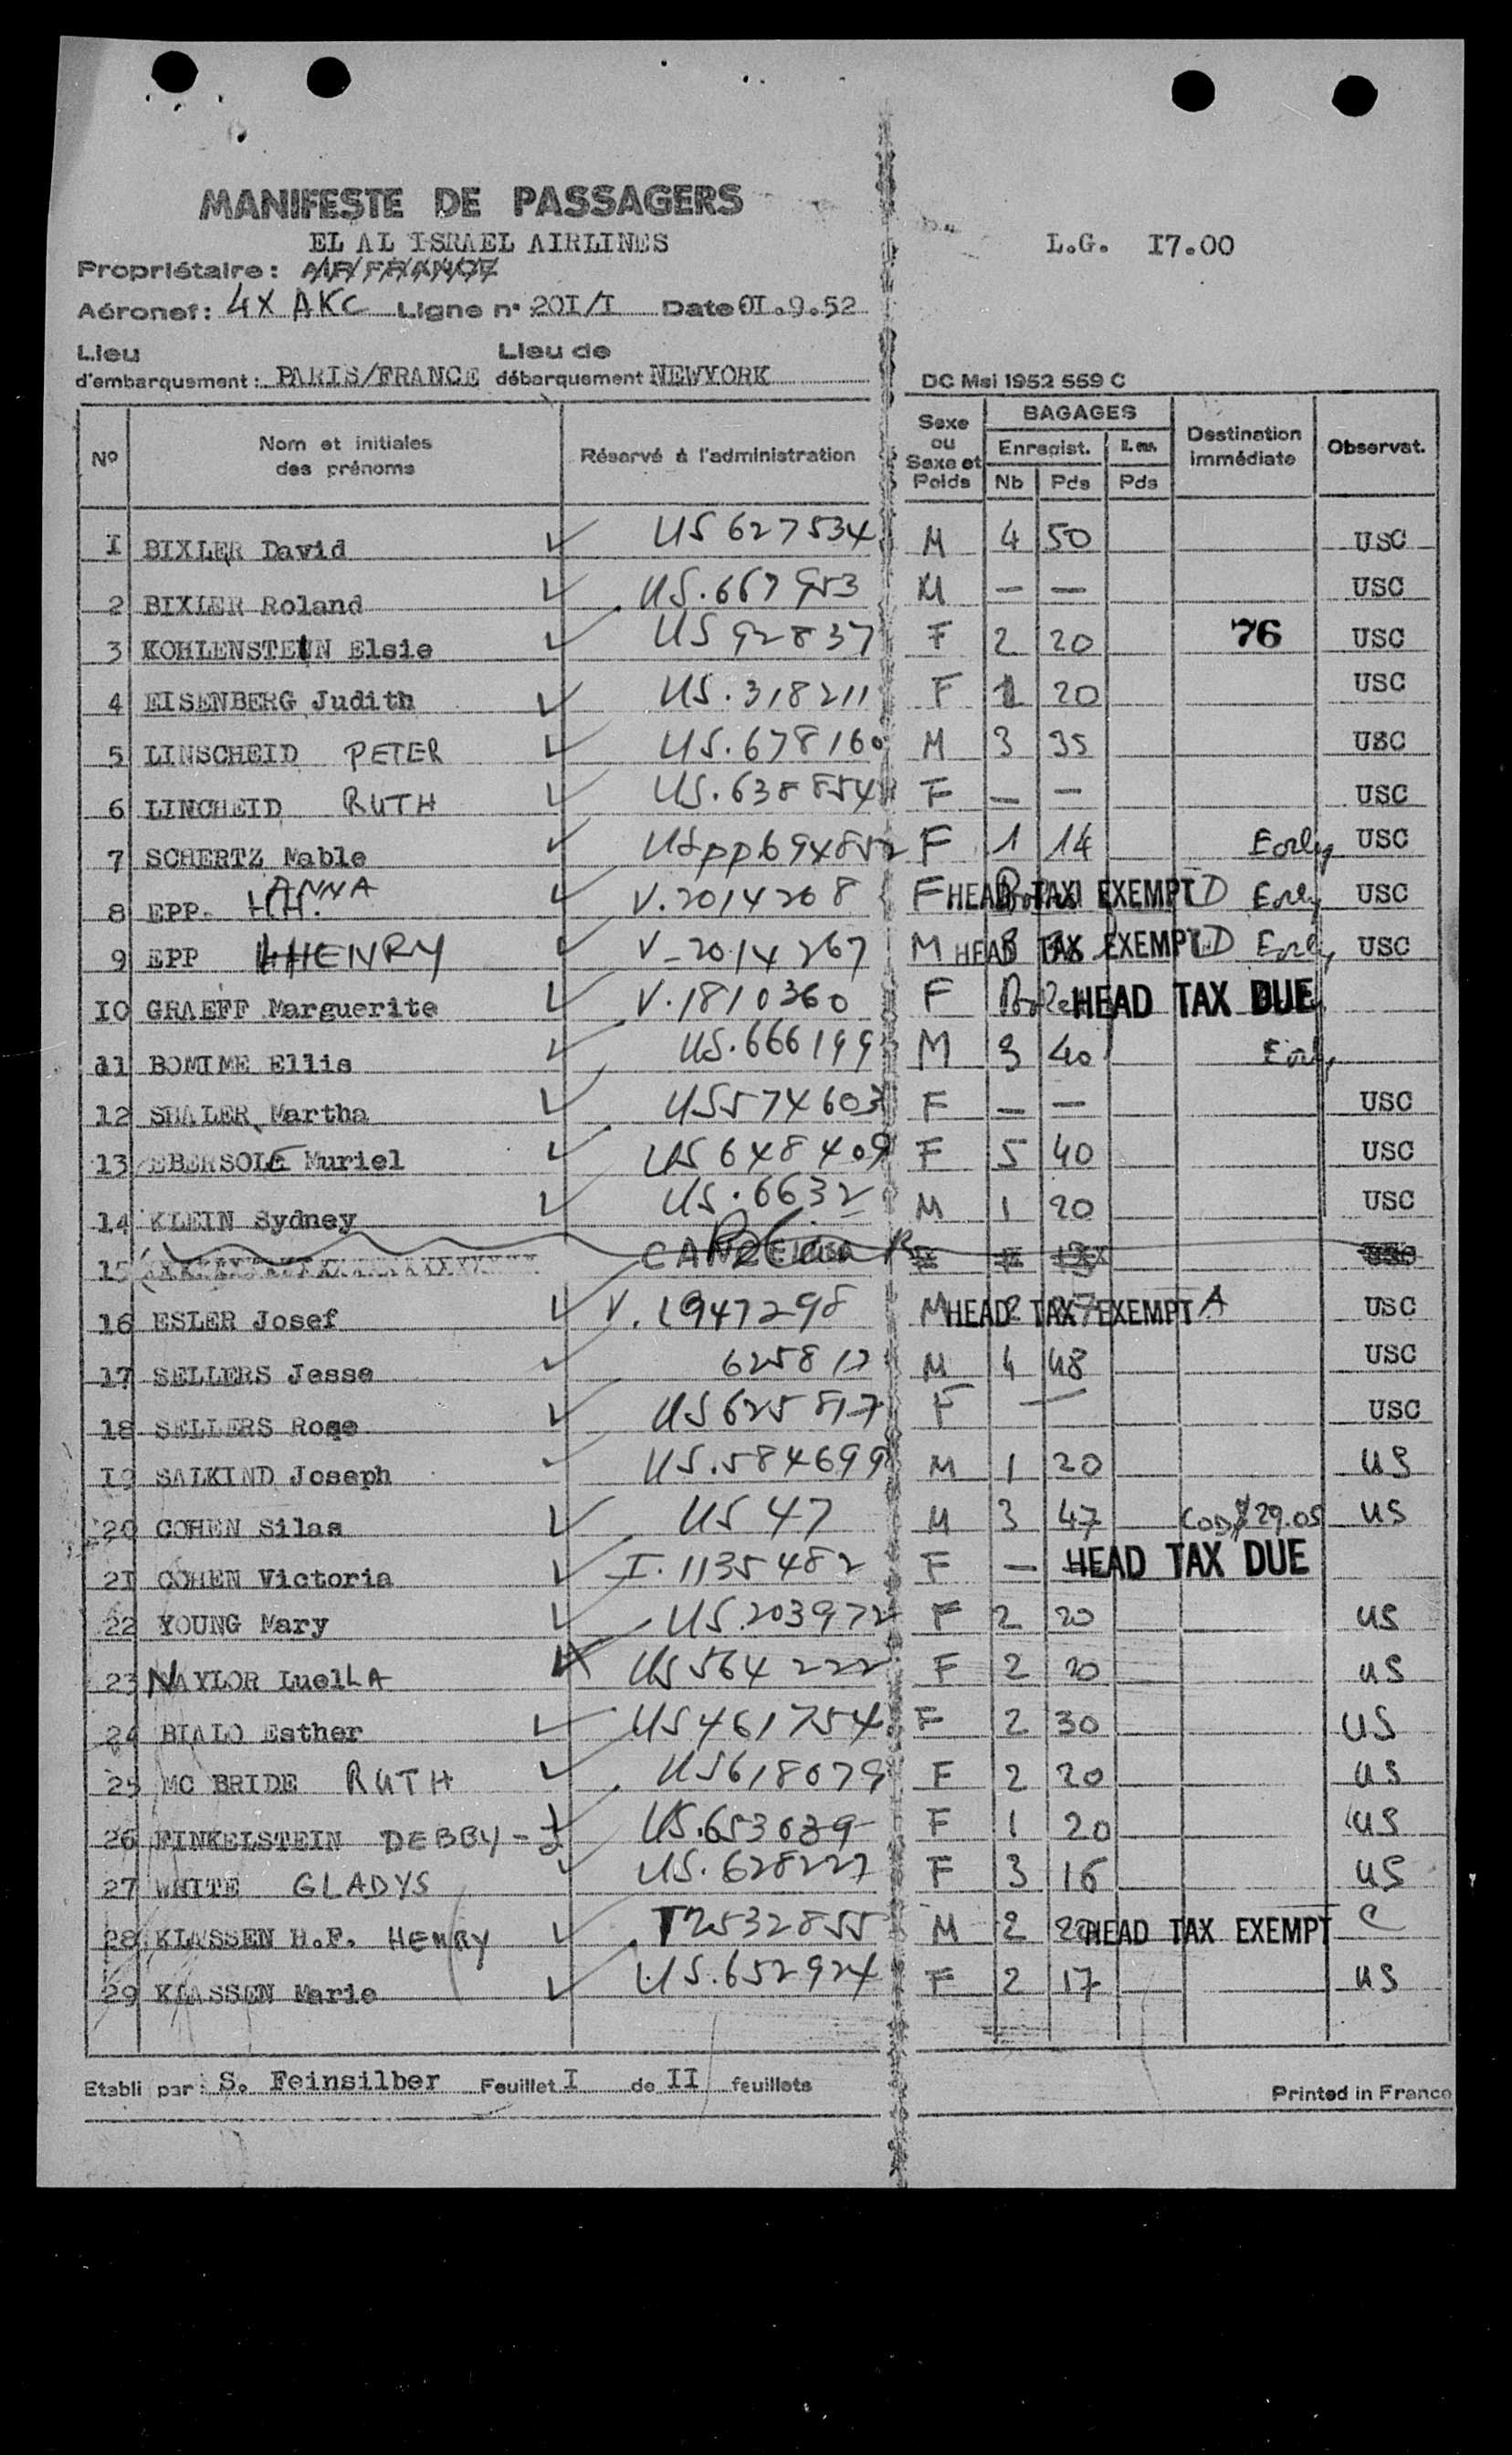 MANIFESTE DE PASSAGERS
EL AL ISRAEL AIRLINES
L.G. I7.00
Propriétaire: AIR FRANCE
Aéronef: 4X AKC Ligne n° 20I/I Date 0I.9.52
Lieu d'embarquement: PARIS/FRANCE Lieu de débarquement NEWYORK
DC Mai 1952 559 C
Nº Nom et initiales des prénoms Réservé à l'administration Sexe ou Sexe et Poids BAGAGES Enregist. Nb Pds Pds Destination immédiate Observat.
I BIXLER David US 627534 M 4 50 USC
2 BIXLER Roland US.667953 M — — USC
3 KOHLENSTEIN Elsie US 92837 F 2 20 76 USC
4 EISENBERG Judith US.318211 F 1 20 USC
5 LINSCHEID PETER US.678160 M 3 35 USC
6 LINCHEID RUTH US.638854 F — — USC
7 SCHERTZ Mable USpp694852 F 1 14 Early USC
8 EPP. H.H. ANNA V.2014208 F HEAD TAX EXEMPT D Early USC
9 EPP HENRY V-2014267 M HEAD TAX EXEMPT D Early USC
I0 GRAEFF Marguerite V.1810360 F HEAD TAX DUE
11 BOMIME Ellis US.666199 M 3 40 Early
12 SHALER Martha US574603 F — — USC
13 EBERSOLE Muriel US 648409 F 5 40 USC
14 KLEIN Sydney US.6632 M 1 20 USC
15
16 ESLER Josef V.1947298 M HEAD TAX EXEMPT A USC
17 SELLERS Jesse 625812 M 4 48 USC
18 SELLERS Rose US625817 F — USC
I9 SALKIND Joseph US.584699 M 1 20 US
20 COHEN Silas US 47 M 3 47 COD $29.05 US
2I COHEN Victoria I.1135482 F — HEAD TAX DUE
22 YOUNG Mary US.203972 F 2 20 US
23 NAYLOR LuelLA US564222 F 2 20 US
24 BIALO Esther US461754 F 2 30 US
25 MC BRIDE RUTH US618079 F 2 20 US
26 FINKELSTEIN DEBBY US.653039 F 1 20 US
27 WHITE GLADYS US.628227 F 3 16 US
28 KLASSEN H.F. HENRY T2532855 M 2 HEAD TAX EXEMPT C
29 KLASSEN Marie US.652924 F 2 17 US
Etabli par: S. Feinsilber Feuillet I de II feuillets
Printed in France